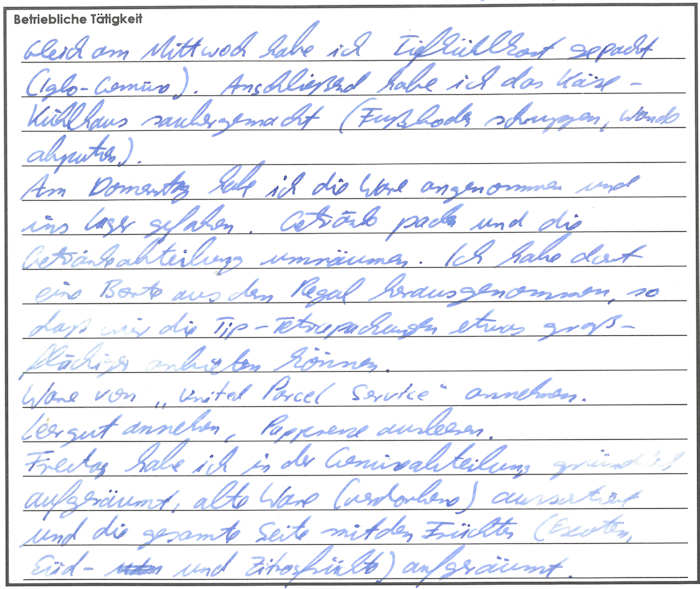 Betriebliche Tätigkeit
Gleich am Mittwoch habe ich Tiefkühlkost gepackt
(Iglo-Gemüse). Anschließend habe ich das Käse-
Kühlhaus saubergemacht (Fußboden schruppen, Wände
abputzen).
Am Donnerstag habe ich die Ware angenommen und
ins Lager gefahren. Getränke packen und die
Getränkeabteilung umräumen. Ich habe dort
eine Borte aus dem Regal herausgenommen, so
daß wir die Tip-Tetrapackungen etwas groß-
flächiger anbieten können.
Ware von „United Parcel Service" annehmen.
Leergut annehmen, Papppresse ausleeren.
Freitag habe ich in der Gemüseabteilung gründlich
aufgeräumt, alte Ware (verdorbene) aussortiert
und die gesamte Seite mit den Früchten (Exoten,
Süd- und Zitrusfrüchte) aufgeräumt.